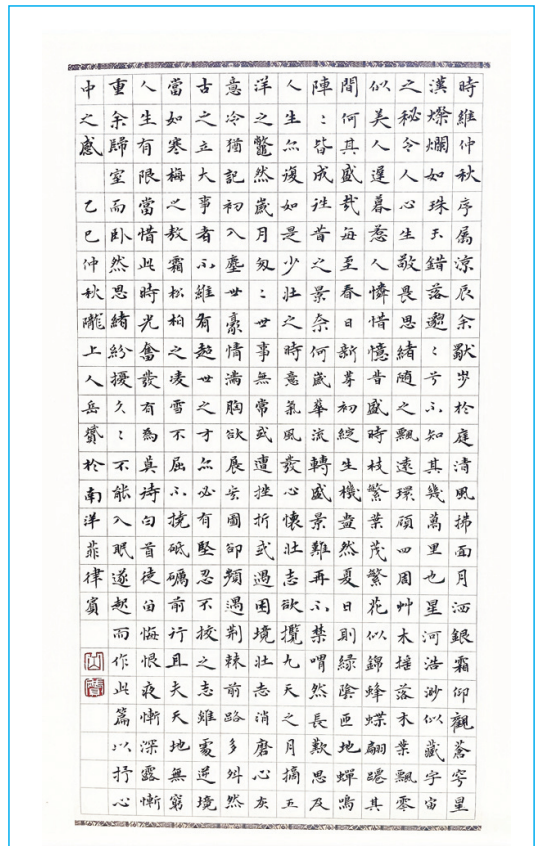 時維仲秋序屬涼辰余默步於庭清風拂面月洒銀霜仰觀蒼穹星
漢燦爛如珠玉錯落邈〻兮不知其幾萬里也星河浩渺似藏宇宙
之秘令人心生敬畏思緒隨之飄遠環顧四周艸木搖落木葉飄零
似美人遲暮惹人憐惜憶昔盛時枝繁葉茂繁花似錦蜂蝶翩躚其
間何其盛哉每至春日新芽初綻生機盎然夏日則綠陰匝地蟬鳴
陣〻皆成往昔之景奈何歲華流轉盛景難再不禁喟然長歎思及
人生亦復如是少壯之時意氣風發心懷壯志欲攬九天之月搞五
洋之鱉然歲月匆〻世事無常或遭挫折或遇困境壯志消磨心灰
意冷猶記初入塵世豪情滿胸欲展宏圖卻頻遇荊棘前路多舛然
古之立大事者不維有超世之才亦必有堅忍不拔之志雖處逆境
當如寒梅之敖霜松柏之凌雪不屈不撓砥礪前行且夫天地無窮
人生有限當惜此時光奮發有為莫待白首徒留悔恨夜漸深露漸
重余歸室而臥然思緒紛擾久〻不能入眠遂起而作此篇以抒心
中之感 乙巳仲秋隴上人岳贇於南洋菲律賓